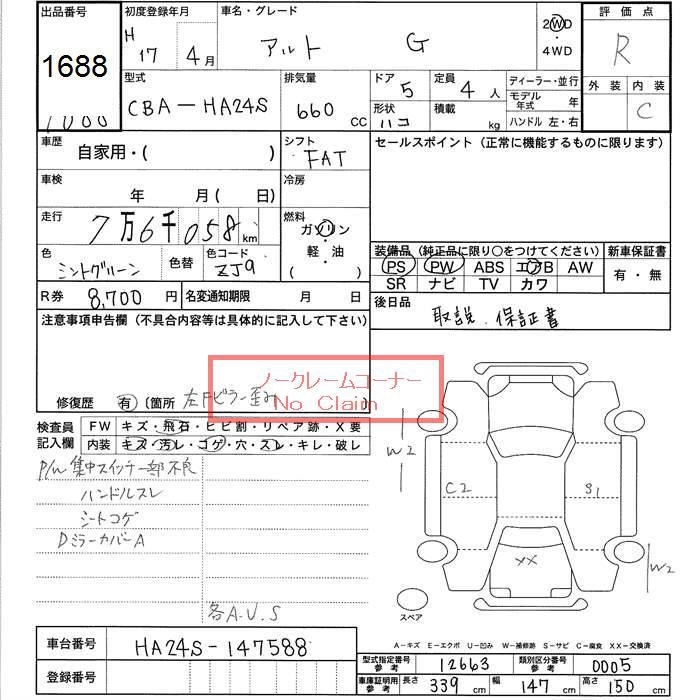 出品番号 初度登録年月 車名・グレード 評価点
1688 H 17 4月 アルト G 2WD ・ 4WD R
型式 排気量 ドア 定員 ディーラー・並行 外装 内装
CBA-HA24S 660 CC 5 4人 モデル年式 年 C
形状 ハコ 積載 kg ハンドル 左・右
車歴 自家用・( ) シフト FAT セールスポイント(正常に機能するものに限ります)
車検 年 月(日) 冷房
走行 7万6千058km 燃料 ガソリン 軽・油 ( )
色 ミントグリーン 色替 色コード ZJ9
装備品(純正品に限り○をつけてください) 新車保証書
PS PW ABS エアB AW 有・無
SR ナビ TV カワ
R券 8,700円 名変通知期限 月 日 後日品 取説、保証書
注意事項申告欄(不具合内容等は具体的に記入して下さい)
ノークレームコーナー
No Claim
修復歴 有 〔箇所 左Fピラー歪み
検査員記入欄 FW キズ・飛石・ヒビ割・リペア跡・X要
内装 キズ・汚レ・コゲ・穴・スレ・キレ・破レ
P/W集中スイッチ一部不良
ハンドルスレ
シートコゲ
DミラーカバーA
各A.U.S
W2
C2
S1
XX
W2
スペア
A-キズ E-エクボ U-凹み W-補修跡 S-サビ C-腐食 XX-交換済
車台番号 HA24S-147588
登録番号
型式指定番号 参考 12663 類別区分番号 参考 0005
車庫証明用 参考 長さ 339cm 幅 147cm 高さ 150cm